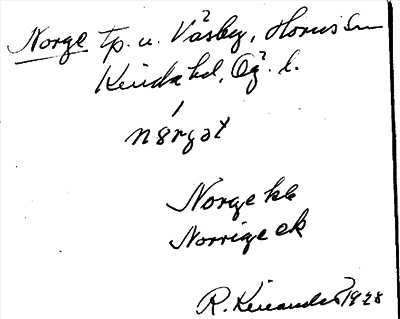 Norge tp. u. Väsby, Horns sn
Kinda hd, Ög. l.
nørgət
Norge kb
Norrige ek
R. Kinander 1928